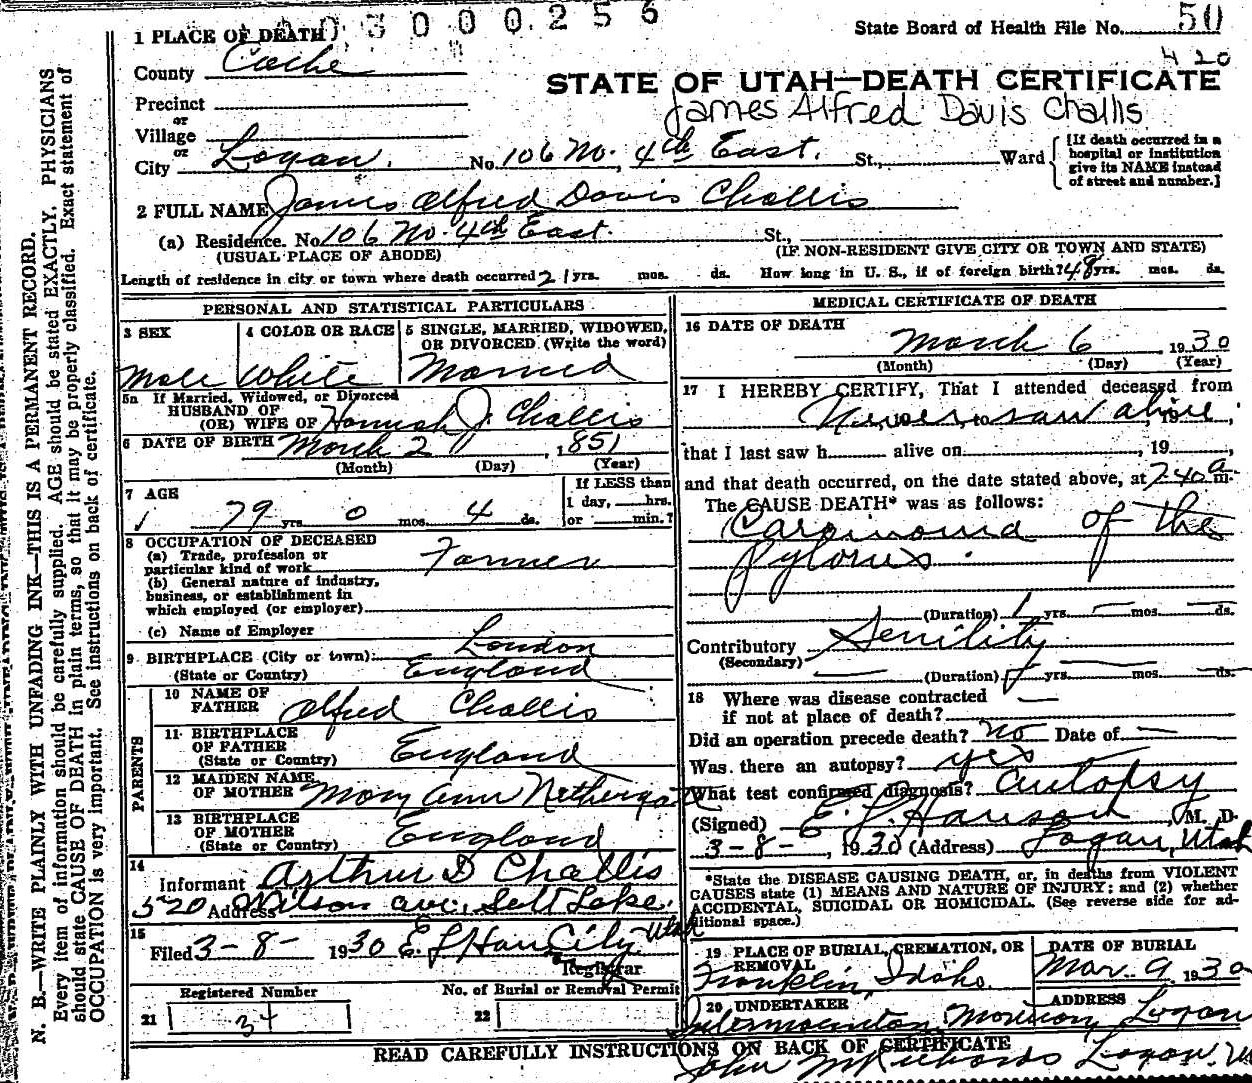 03000256
State Board of Health File No. 50
420
1 PLACE OF DEATH
County Cache
STATE OF UTAH—DEATH CERTIFICATE
James Alfred Davis Challis
Precinct
or
Village
or
City Logan. No. 106 No. 4th East. St., Ward
[If death occurred in a hospital or institution give its NAME instead of street and number.]
2 FULL NAME James Alfred Davis Challis
(a) Residence. No. 106 No. 4th East. St.,
(USUAL PLACE OF ABODE) (IF NON-RESIDENT GIVE CITY OR TOWN AND STATE)
Length of residence in city or town where death occurred 21 yrs. mos. ds. How long in U. S., if of foreign birth? 48 yrs. mos. ds.
PERSONAL AND STATISTICAL PARTICULARS
3 SEX 4 COLOR OR RACE 5 SINGLE, MARRIED, WIDOWED,
OR DIVORCED (Write the word)
Male White Married
5a If Married, Widowed, or Divorced
HUSBAND OF
(OR) WIFE OF Hannah J. Challis
6 DATE OF BIRTH March 2 1851
(Month) (Day) (Year)
7 AGE If LESS than
1 day, hrs.
79 yrs. 0 mos. 4 ds. or min.?
8 OCCUPATION OF DECEASED
(a) Trade, profession or
particular kind of work Farmer
(b) General nature of industry,
business, or establishment in
which employed (or employer)
(c) Name of Employer
9 BIRTHPLACE (City or town): London
(State or Country) England
PARENTS
10 NAME OF
FATHER Alfred Challis
11 BIRTHPLACE
OF FATHER
(State or Country) England
12 MAIDEN NAME
OF MOTHER Mary Ann Nethergate
13 BIRTHPLACE
OF MOTHER
(State or Country) England
14
Informant Arthur D Challis
Address 520 Wilson ave, Salt Lake
City Utah
15
Filed 3-8- 1930 E. L. Hanson
Registrar
Registered Number No. of Burial or Removal Permit
21 34 22
MEDICAL CERTIFICATE OF DEATH
16 DATE OF DEATH
March 6 1930
(Month) (Day) (Year)
17 I HEREBY CERTIFY, That I attended deceased from
Never saw alive
that I last saw h alive on , 19
and that death occurred, on the date stated above, at 7-40 a m.
The CAUSE DEATH* was as follows:
Carcinoma of the
Pylorus.
(Duration) 1 yrs. — mos. — ds.
Contributory Senility
(Secondary)
(Duration) yrs. — mos. — ds.
18 Where was disease contracted
if not at place of death? —
Did an operation precede death? no Date of —
Was there an autopsy? yes
What test confirmed diagnosis? Autopsy
(Signed) E. L. Hanson, (M. D.
3-8-, 1930 (Address) Logan, Utah
*State the DISEASE CAUSING DEATH, or, in deaths from VIOLENT
CAUSES state (1) MEANS AND NATURE OF INJURY: and (2) whether
ACCIDENTAL, SUICIDAL OR HOMICIDAL. (See reverse side for ad-
ditional space.)
19 PLACE OF BURIAL, CREMATION, OR DATE OF BURIAL
REMOVAL
Franklin, Idaho. Mar. 9 1930
20 UNDERTAKER ADDRESS
Intermountain Mortuary Logan
READ CAREFULLY INSTRUCTIONS ON BACK OF CERTIFICATE
John M Richards Logan, Ut
N. B.—WRITE PLAINLY WITH UNFADING INK—THIS IS A PERMANENT RECORD.
Every item of information should be carefully supplied. AGE should be stated EXACTLY. PHYSICIANS
should state CAUSE OF DEATH in plain terms, so that it may be properly classified. Exact statement of
OCCUPATION is very important. See instructions on back of certificate.